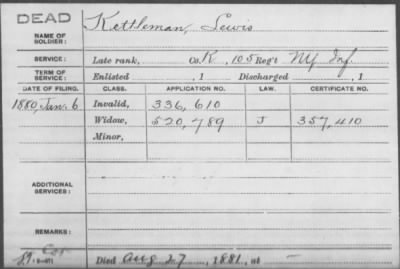 DEAD
NAME OF SOLDIER: Kettleman, Lewis
SERVICE: Late rank, Co. K, 105 Reg't NY Inf.
TERM OF SERVICE: Enlisted , 1 Discharged , 1
DATE OF FILING. CLASS. APPLICATION NO. LAW. CERTIFICATE NO.
1880, Jan. 6 Invalid, 336,610
Widow, 520,789 J 357,410
Minor,
ADDITIONAL SERVICES:
REMARKS:
Died Aug 27, 1881, at —